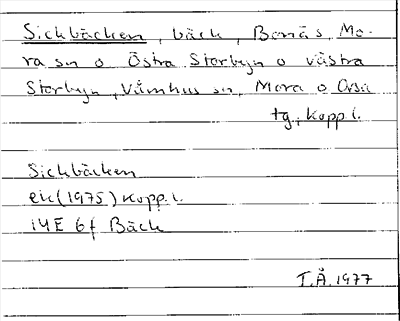 Sickbäcken, bäck, Bonäs, Mo-
ra sn o Östra Storbyn o västra
Storbyn, Våmhus sn, Mora o Orsa
tg., Kopp l.
Sickbäcken
ek (1975) Kopp. l.
14E 6f Bäck
T.Å. 1977